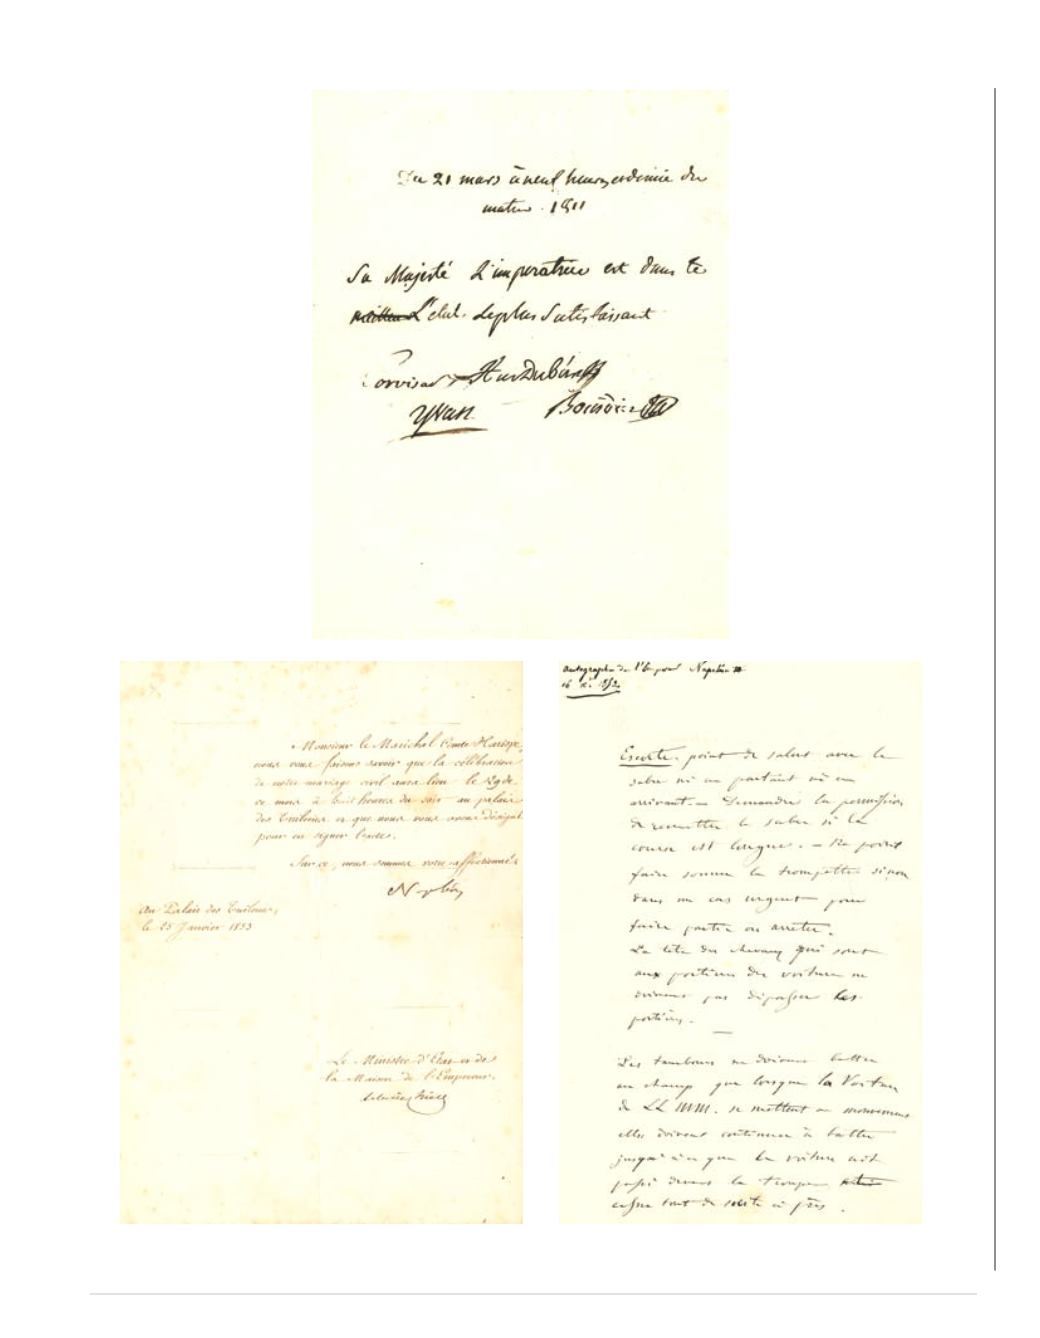 Du 21 mars à neuf heures et demie du
matin. 1811
Sa Majesté L'imperatrice est dans le
L'état le plus Satisfaisant
Corvisart
Yvan
Monsieur le Maréchal Comte Harispe,
nous vous faisons savoir que la célébration
de notre mariage civil aura lieu le 29 de
ce mois à huit heures du soir au palais
des Tuileries et que nous vous avons désigné
pour en signer l'acte.
Sur ce, nous sommes votre affectionné
Napoléon
Au Palais des Tuileries,
le 25 Janvier 1853
Le Ministre d'Etat et de
la Maison de l'Empereur,
autographe de l'Empereur Napoléon III
16 1852
Escorte. point de salut avec le
sabre ni en partant ni en
arrivant — Demander la permission
de remettre le sabre si la
course est longue. — Ne point
faire sonner la trompette sinon
dans un cas urgent pour
faire partir ou arrêter.
La tête des chevaux qui sont
aux portières des voitures ne
doivent pas dépasser les
portières.
Les tambours ne doivent battre
au champ que lorsque la Voiture
de LL MM. se mettent en mouvement
elles doivent continuer à battre
jusqu'à ce que la voiture ait
passé devant la troupe
cesser tout de suite après.